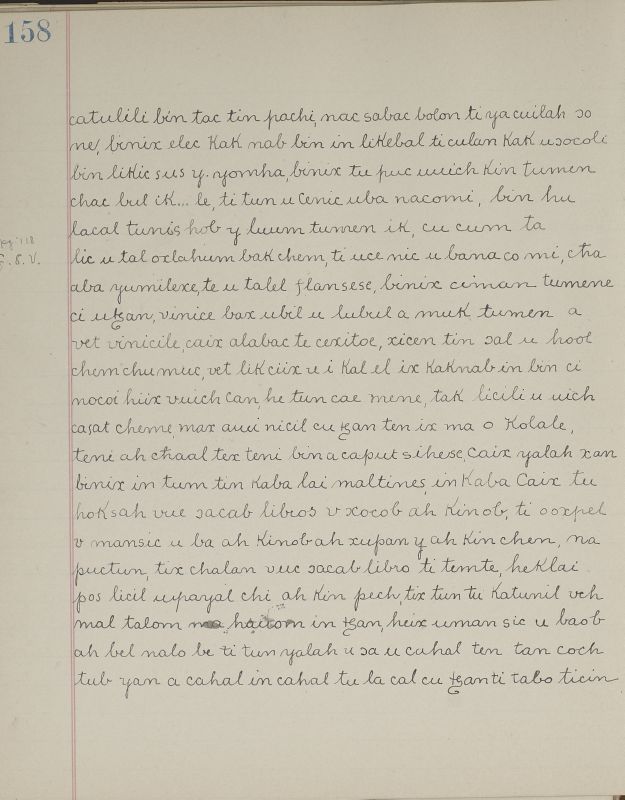 158
catulili bin tac tin pachi, nac sabac bolon ti ya cuilah ɔo
ne, binix elec Kak nab bin in likebal ti culan Kak uɔocoli
bin likic sus y. yomha, binix tu puc uuich Kin tumen
chac bul ik... le, ti tun u cenic uba nacomi, bin hu
lacal tunis hob y luum tumen ik, cu cum ta
lic u tal oxlahum bak chem, ti uce nic u bana co mi, cha
aba yumilexe, te u talel flansese, binix ciman tumene
ci utzan, vinice bax ubil u lubul a muk tumen a
vet vinicile, caix alabac te cexitoe, xicen tin ɔal u hool
chem chumuc, vet likciix u i Kal el ix kaknab in bin ci
nocoi hiix vuich can, he tun cae mene, tak licili u uich
caṣat cheme, max auinicil cu tzan ten ix ma o Kolale,
teni ah chaal tex teni bin a caput sihese, Caix yalah xan
binix in tum tin Kaba lai maltines, in Kaba Caix tu
hoksah vue ɔacab libros v xocob ah Kinob, ti ooxpel
v mansic u ba ah Kinob ah xupan y ah Kin chen, na
puctun, tix chalan vuc ɔacab libro ti temte, heklai
pos licil upayal chi ah Kin pech, tix tun tu Katunil vch
mal talom haitom in tzan, heix uman sic u baob
ah bel nalo be ti tun yalah u ɔa u cahal ten tan coch
tub yan a cahal in cahal tu la cal cu tzanti tabo ticin